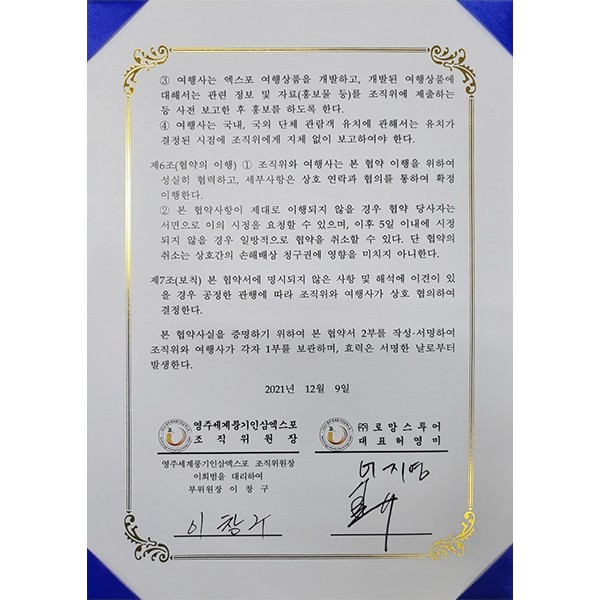 ③ 여행사는 엑스포 여행상품을 개발하고, 개발된 여행상품에
대해서는 관련 정보 및 자료(홍보물 등)를 조직위에 제출하는
등 사전 보고한 후 홍보를 하도록 한다.
④ 여행사는 국내, 국외 단체 관람객 유치에 관해서는 유치가
결정된 시점에 조직위에게 지체 없이 보고하여야 한다.
제6조(협약의 이행) ① 조직위와 여행사는 본 협약 이행을 위하여
성실히 협력하고, 세부사항은 상호 연락과 협의를 통하여 확정
이행한다.
② 본 협약사항이 제대로 이행되지 않을 경우 협약 당사자는
서면으로 이의 시정을 요청할 수 있으며, 이후 5일 이내에 시정
되지 않을 경우 일방적으로 협약을 취소할 수 있다. 단 협약의
취소는 상호간의 손해배상 청구권에 영향을 미치지 아니한다.
제7조(보칙) 본 협약서에 명시되지 않은 사항 및 해석에 이견이 있
을 경우 공정한 관행에 따라 조직위와 여행사가 상호 협의하여
결정한다.
본 협약사실을 증명하기 위하여 본 협약서 2부를 작성·서명하여
조직위와 여행사가 각자 1부를 보관하며, 효력은 서명한 날로부터
발생한다.
2021년 12월 9일
영주세계풍기인삼엑스포
조직위원장
영주세계풍기인삼엑스포 조직위원장
이희범을 대리하여
부위원장 이창구
이창구
㈜로망스투어
대표허영미
이지영